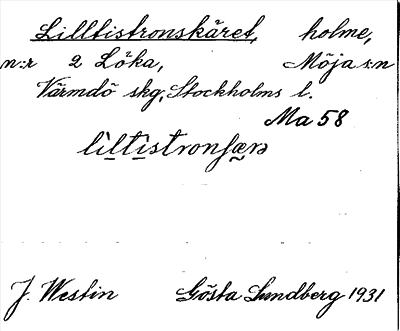 Lilltistronskäret, holme,
n:r 2 Löka, Möja s:n
Värmdö skg, Stockholms l.
Ma 58
liltistronʃærə
J. Westin Gösta Lundberg 1931